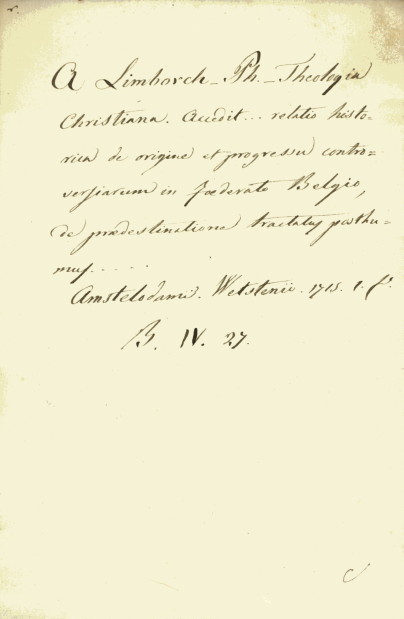 A Limborch - Ph. - Theologia
Christiana. Accedit... relatio histo-
rica de origine et progressu contro=
versiarum in fœderato Belgio,
de prædestinatione tractatus posthu=
mus.....
Amstelodami. Wetstenii. 1715. 1. f.
B. IV. 27.